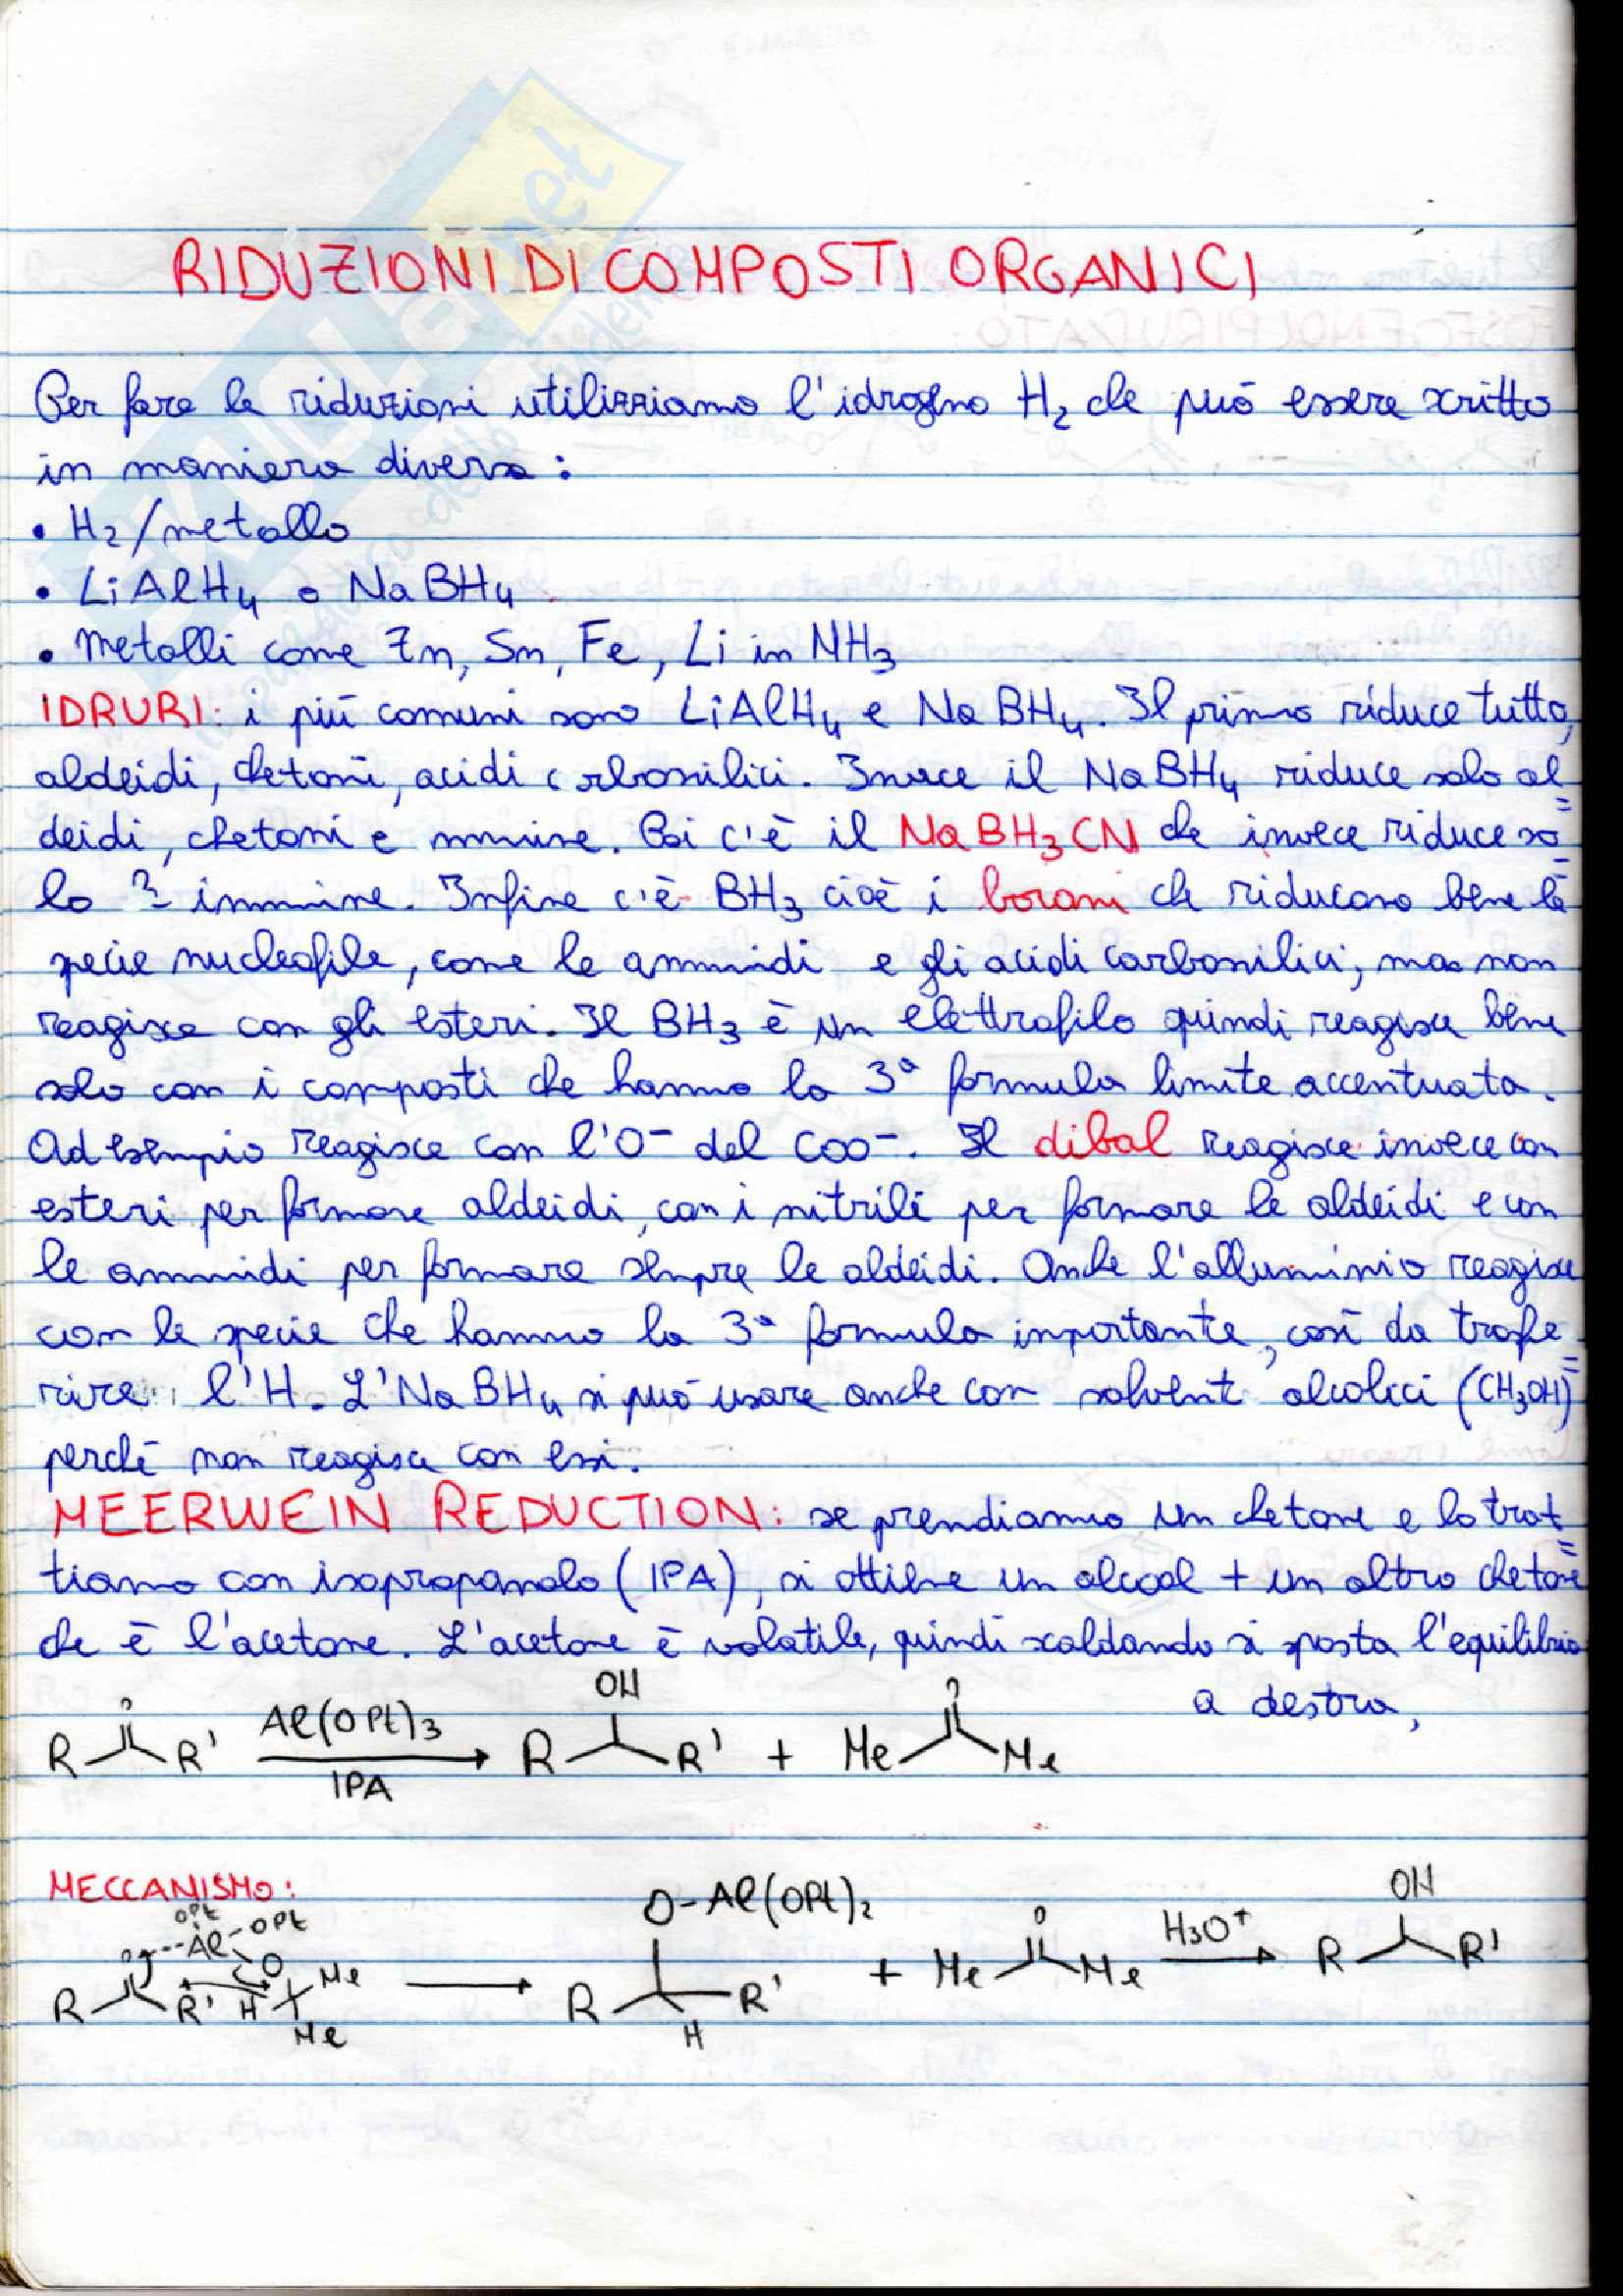 RIDUZIONI DI COMPOSTI ORGANICI
Per fare le riduzioni utilizziamo l'idrogeno H₂ che può essere scritto
in maniera diversa:
• H₂/metallo
• LiAlH₄ o NaBH₄
• Metalli come Zn, Sn, Fe, Li in NH₃
IDRURI: i più comuni sono LiAlH₄ e NaBH₄. Il primo riduce tutto,
aldeidi, chetoni, acidi carbossilici. Invece il NaBH₄ riduce solo al=
deidi, chetoni e immine. Poi c'è il NaBH₃CN che invece riduce so=
lo immine. Infine c'è BH₃ cioè i borani che riducono bene le
specie nucleofile, come le ammidi e gli acidi carbossilici, ma non
reagisce con gli esteri. Il BH₃ è un elettrofilo quindi reagisce bene
solo con i composti che hanno la 3ª formula limite accentuata.
Ad esempio reagisce con l'O⁻ del COO⁻. Il dibal reagisce invece con
esteri per formare aldeidi, con i nitrili per formare le aldeidi e con
le ammidi per formare sempre le aldeidi. Anche l'alluminio reagisce
con le specie che hanno la 3ª formula importante, così da trasfe=
rire l'H. L'NaBH₄ si può usare anche con solventi alcolici (CH₃OH)
perché non reagisce con essi.
MEERWEIN REDUCTION: se prendiamo un chetone e lo trat=
tiamo con isopropanolo (IPA), si ottiene un alcool + un altro chetone
che è l'acetone. L'acetone è volatile, quindi scaldando si sposta l'equilibrio
a destra,
O OH O
R R' Al(OPt)₃ IPA R R' + Me Me
MECCANISMO:
OPt
O Al-OPt O-Al(OPt)₂ O OH
R R' H O Me Me R R' H + Me Me H₃O⁺ R R'